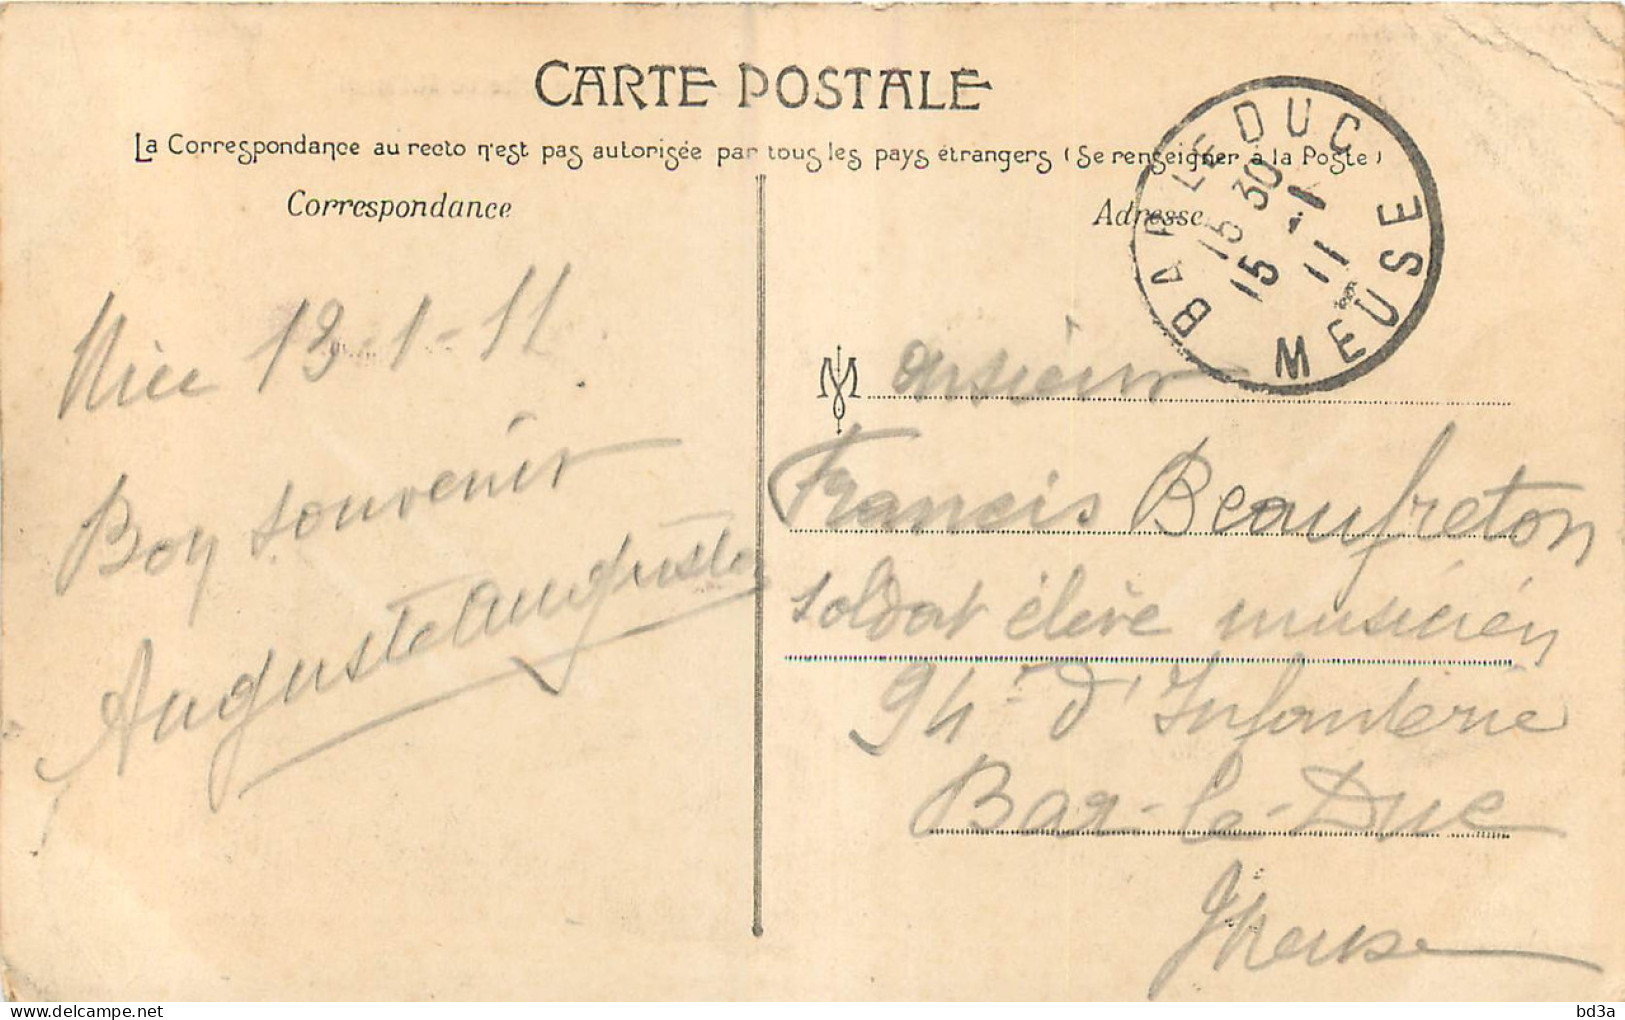 CARTE POSTALE
La Correspondance au recto n'est pas autorisée par tous les pays étrangers (Se renseigner à la Poste)
Correspondance
Adresse
BAR LE DUC
15 30
15 -1
11
MEUSE
Nice 13-1-11
Bon souvenir
Auguste Auguste
Monsieur
Francis Beaufreton
soldat élève musicien
94e d'Infanterie
Bar-le-Duc
Meuse
bd3a